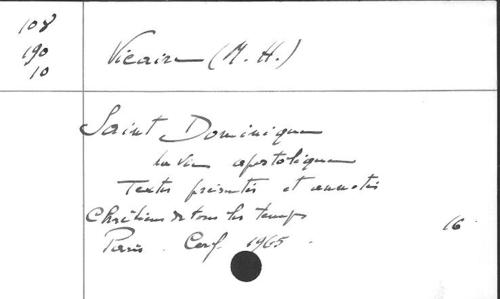 108
190
10
Vicaire (M. H.)
Saint Dominique
la vie apostolique
Textes présentés et annotés
Chrétiens de tous les temps
Paris. Cerf. 1965.
16